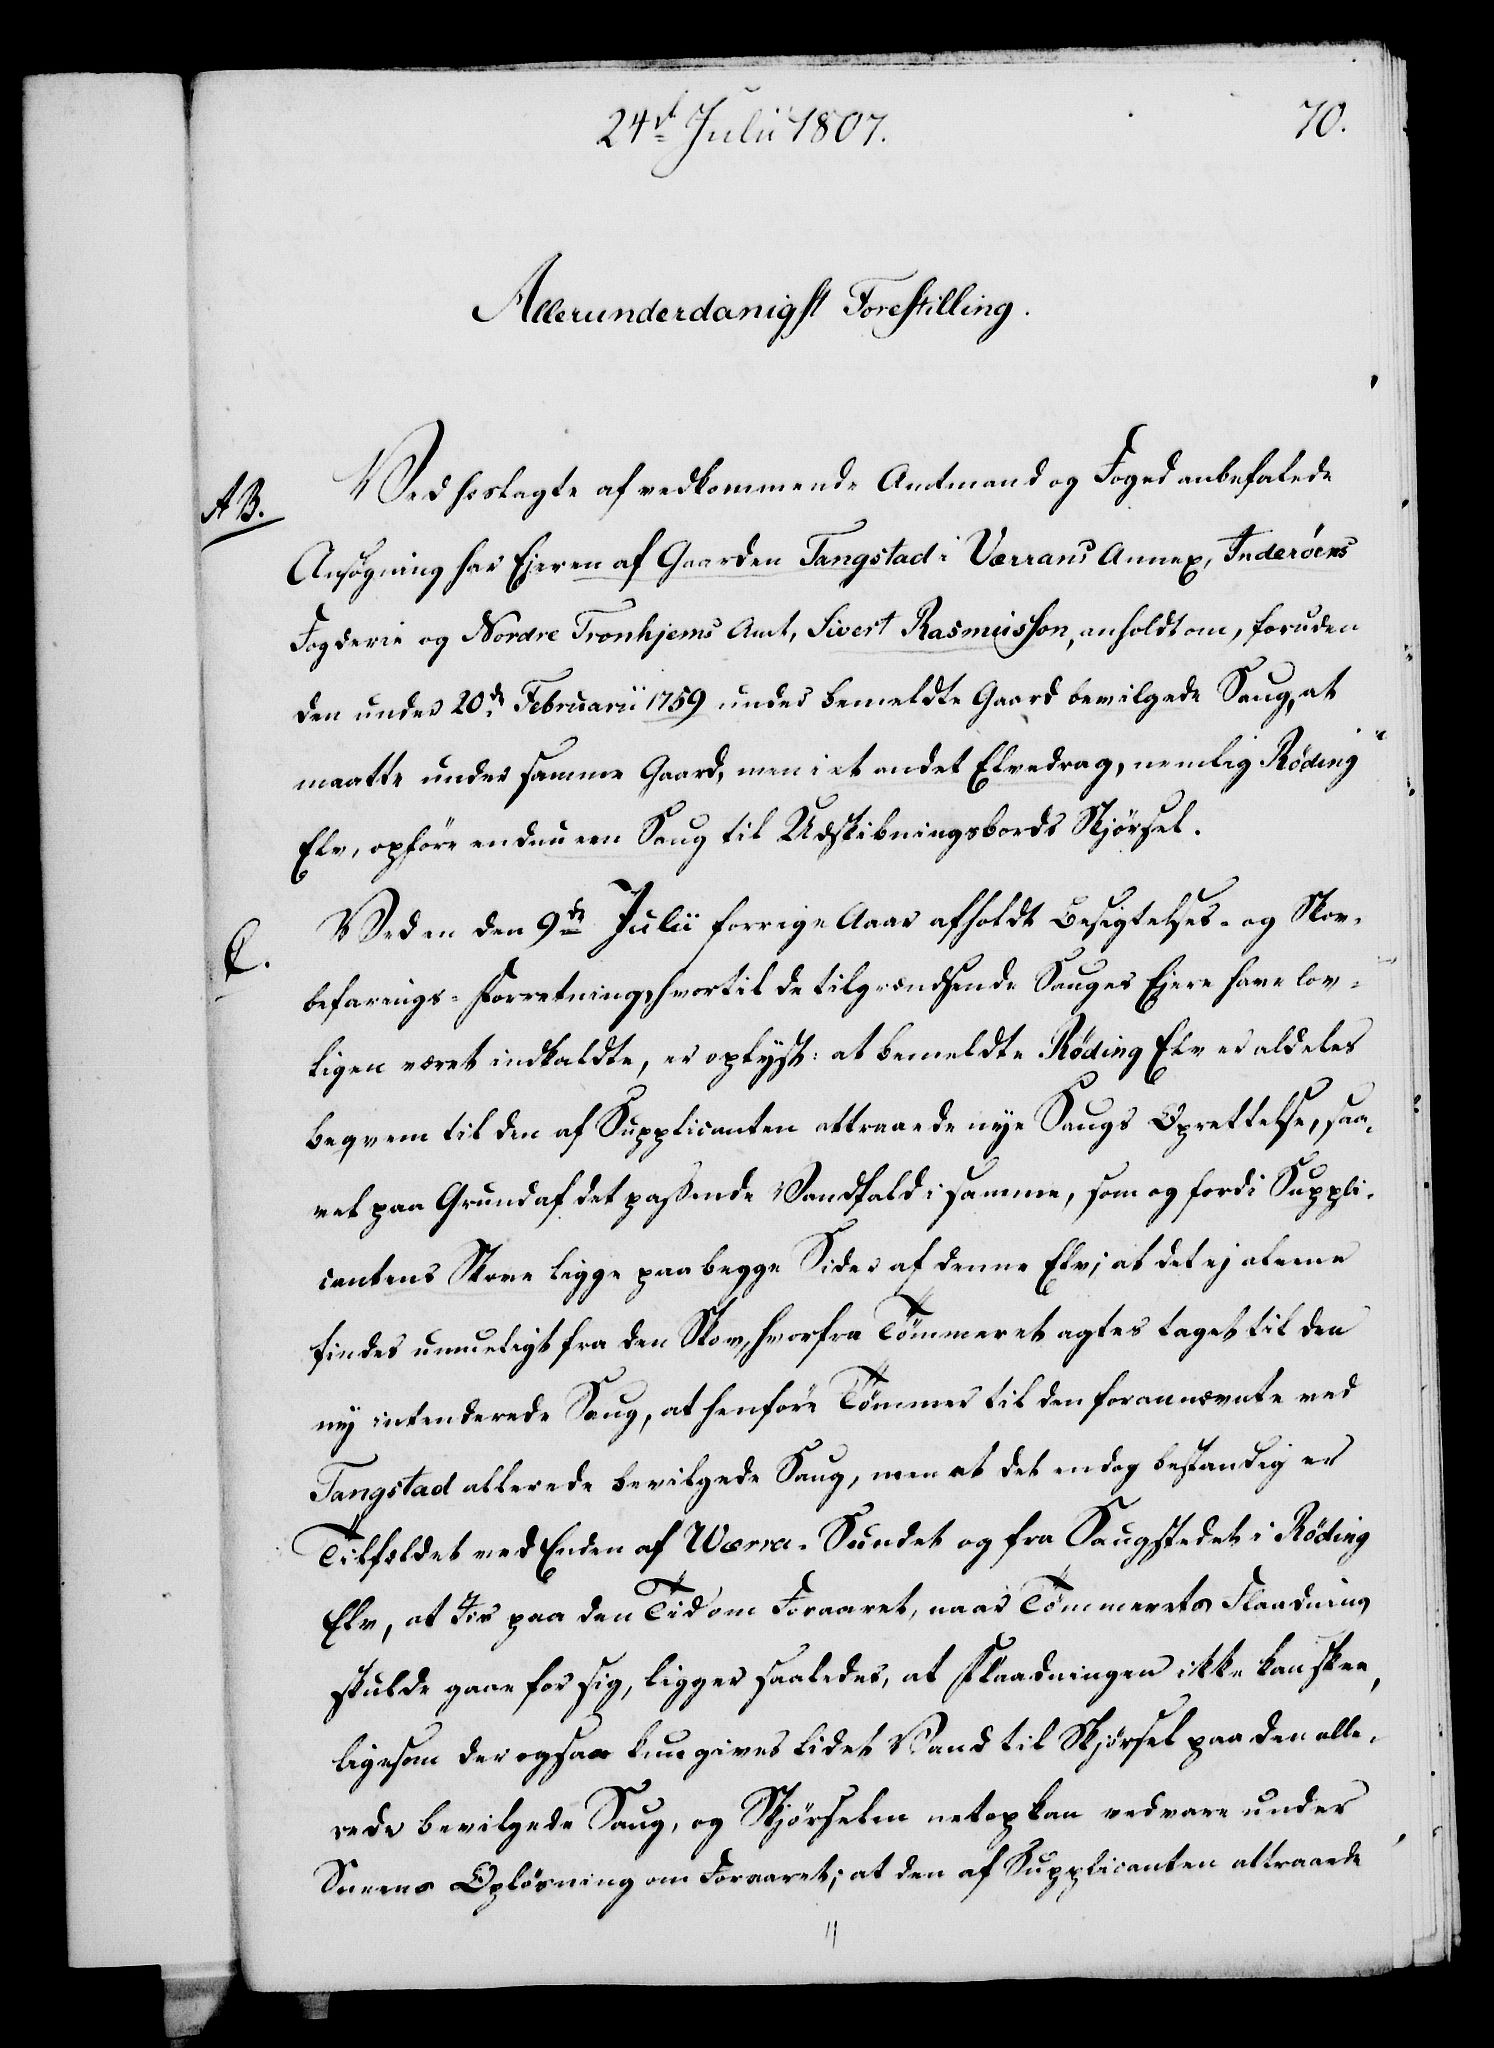 24d. Julii 1807.
70.
Allerunderdanigst Forestilling.
AB.
Ved hoslagte af vedkommende Amtmand og Foged anbefalede
Ansøgning har Ejeren af Gaarden Tangstad i Værrans Annex, Inderöens
Fogderie og Nordre Tronhjems Amt, Sivert Rasmusson, anholdt om, foruden
den under 20de Februarii 1759 under bemeldte Gaard bevilgede Saug, at
maatte under samme Gaard, men i et andet Elvedrag, nemlig Røding
Elv, opföre endnu een Saug til Udskibningsbords Skjörsel.
C.
Ved en den 9de Julii forrige Aar afholdt Besigtelses- og Skov-
befarings-Forretning, hvortil de tilgrændsende Sauges Ejere have lov-
ligen været indkaldte, er oplyst: at bemeldte Røding Elv er aldeles
beqvem til den af Supplicanten attraaede nye Saugs Oprettelse, saa-
vel paa Grund af det passende Vandfald i samme, som og fordi Suppli-
cantens Skove ligge paa begge Sider af denne Elv; at det ej alene
findes umueligt fra den Skov, hvorfra Tömmeret agtes taget til den
ny intenderede Saug, at henföre Tömmer til den forannævnte ved
Tangstad allerede bevilgede Saug, men at det endog bestandig er
Tilfældet ved Enden af Værra-Sundet og fra Saugstedet i Røding
Elv, at Iis paa den Tid om Foraaret, naar Tömmerets Flaadning
skulde gaae for sig, ligger saaledes, at Flaadningen ikke kan skee,
ligesom der ogsaa kun gives lidet Vand til Skjörsel paa den alle-
rede bevilgede Saug, og Skjörselen netop kan vedvare under
Sneens Oplösning om Foraaret; at den af Supplicanten attraaede